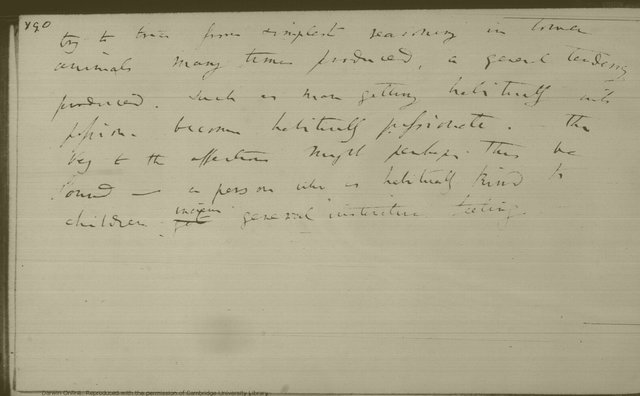 190
try to trace from simplest reasoning in lower
animals many times produced, a general tendency
produced. Such as man getting habitually into
passion becomes habitually passionate. — The
key to the affections might perhaps thus be
found — a person who is habitually kind to
children increases general instinctive feeling.
Darwin Online: Reproduced with the permission of Cambridge University Library